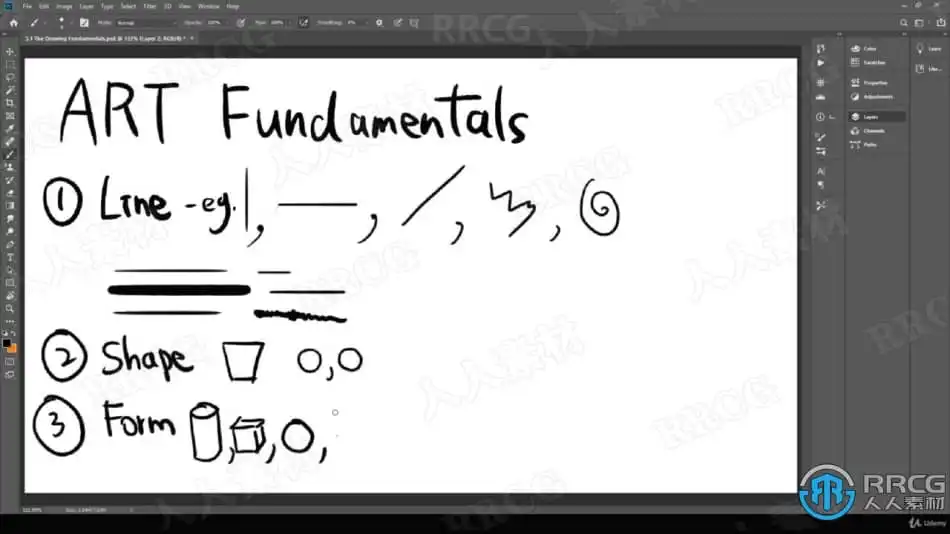 File Edit Image Layer Type Select Filter 3D View Window Help
Mode: Normal Opacity: 100% Flow: 100% Smoothing: 0%
3.1 The Drawing Fundamentals.psd @ 133% (Layer 2, RGB/8) *
ART Fundamentals
① Line - eg. | , — , / , ,
② Shape ,
③ Form , , ,
Color
Swatches
Properties
Adjustments
Layers
Channels
Paths
Learn
RRCG
人人素材
Udemy